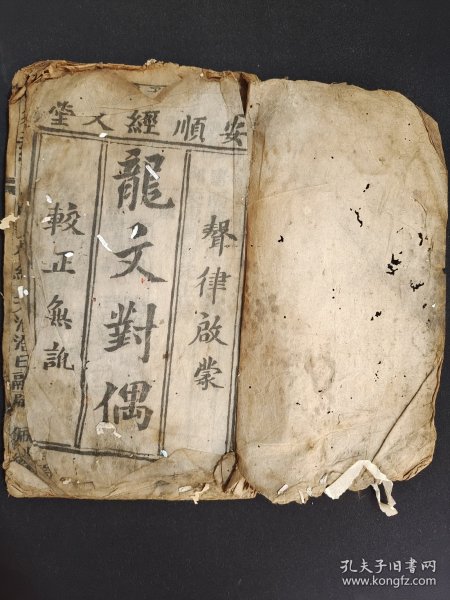 安順經文堂
聲律啟蒙
龍文對偶
較正無訛
孔夫子旧书网
www.kongfz.com